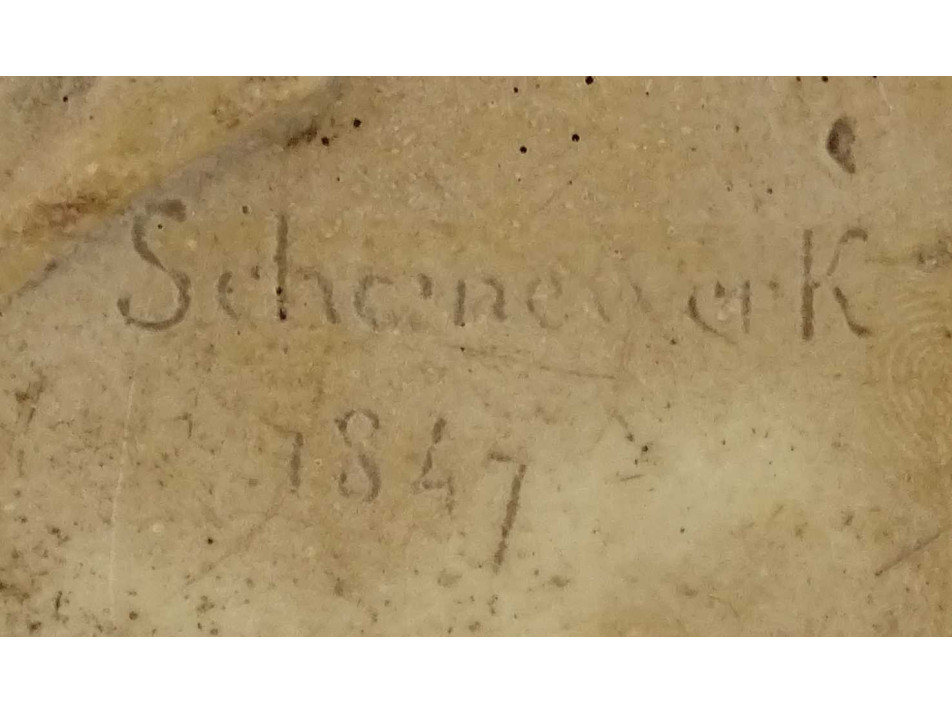 Schœnewerk
1847